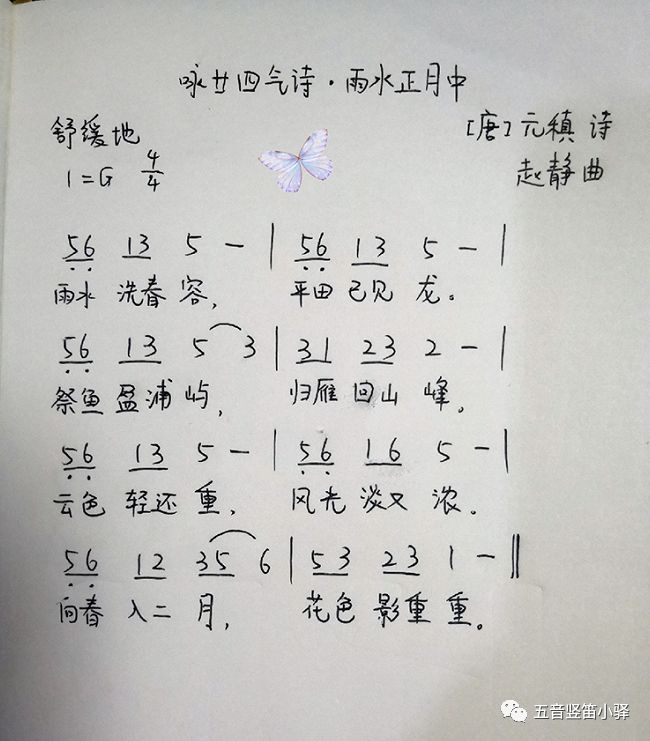 咏廿四气诗·雨水正月中
舒缓地
[唐] 元稹 诗
1=G 4/4
赵静 曲
56 13 5 - | 56 13 5 - |
雨水 洗春 容, 平田 已见 龙。
56 13 5 3 | 31 23 2 - |
祭鱼 盈浦 屿, 归雁 回山 峰。
56 13 5 - | 56 16 5 - |
云色 轻还 重, 风光 淡又 浓。
56 12 35 6 | 53 23 1 - ‖
向春 入二 月, 花色 影重 重。
五音竖笛小驿